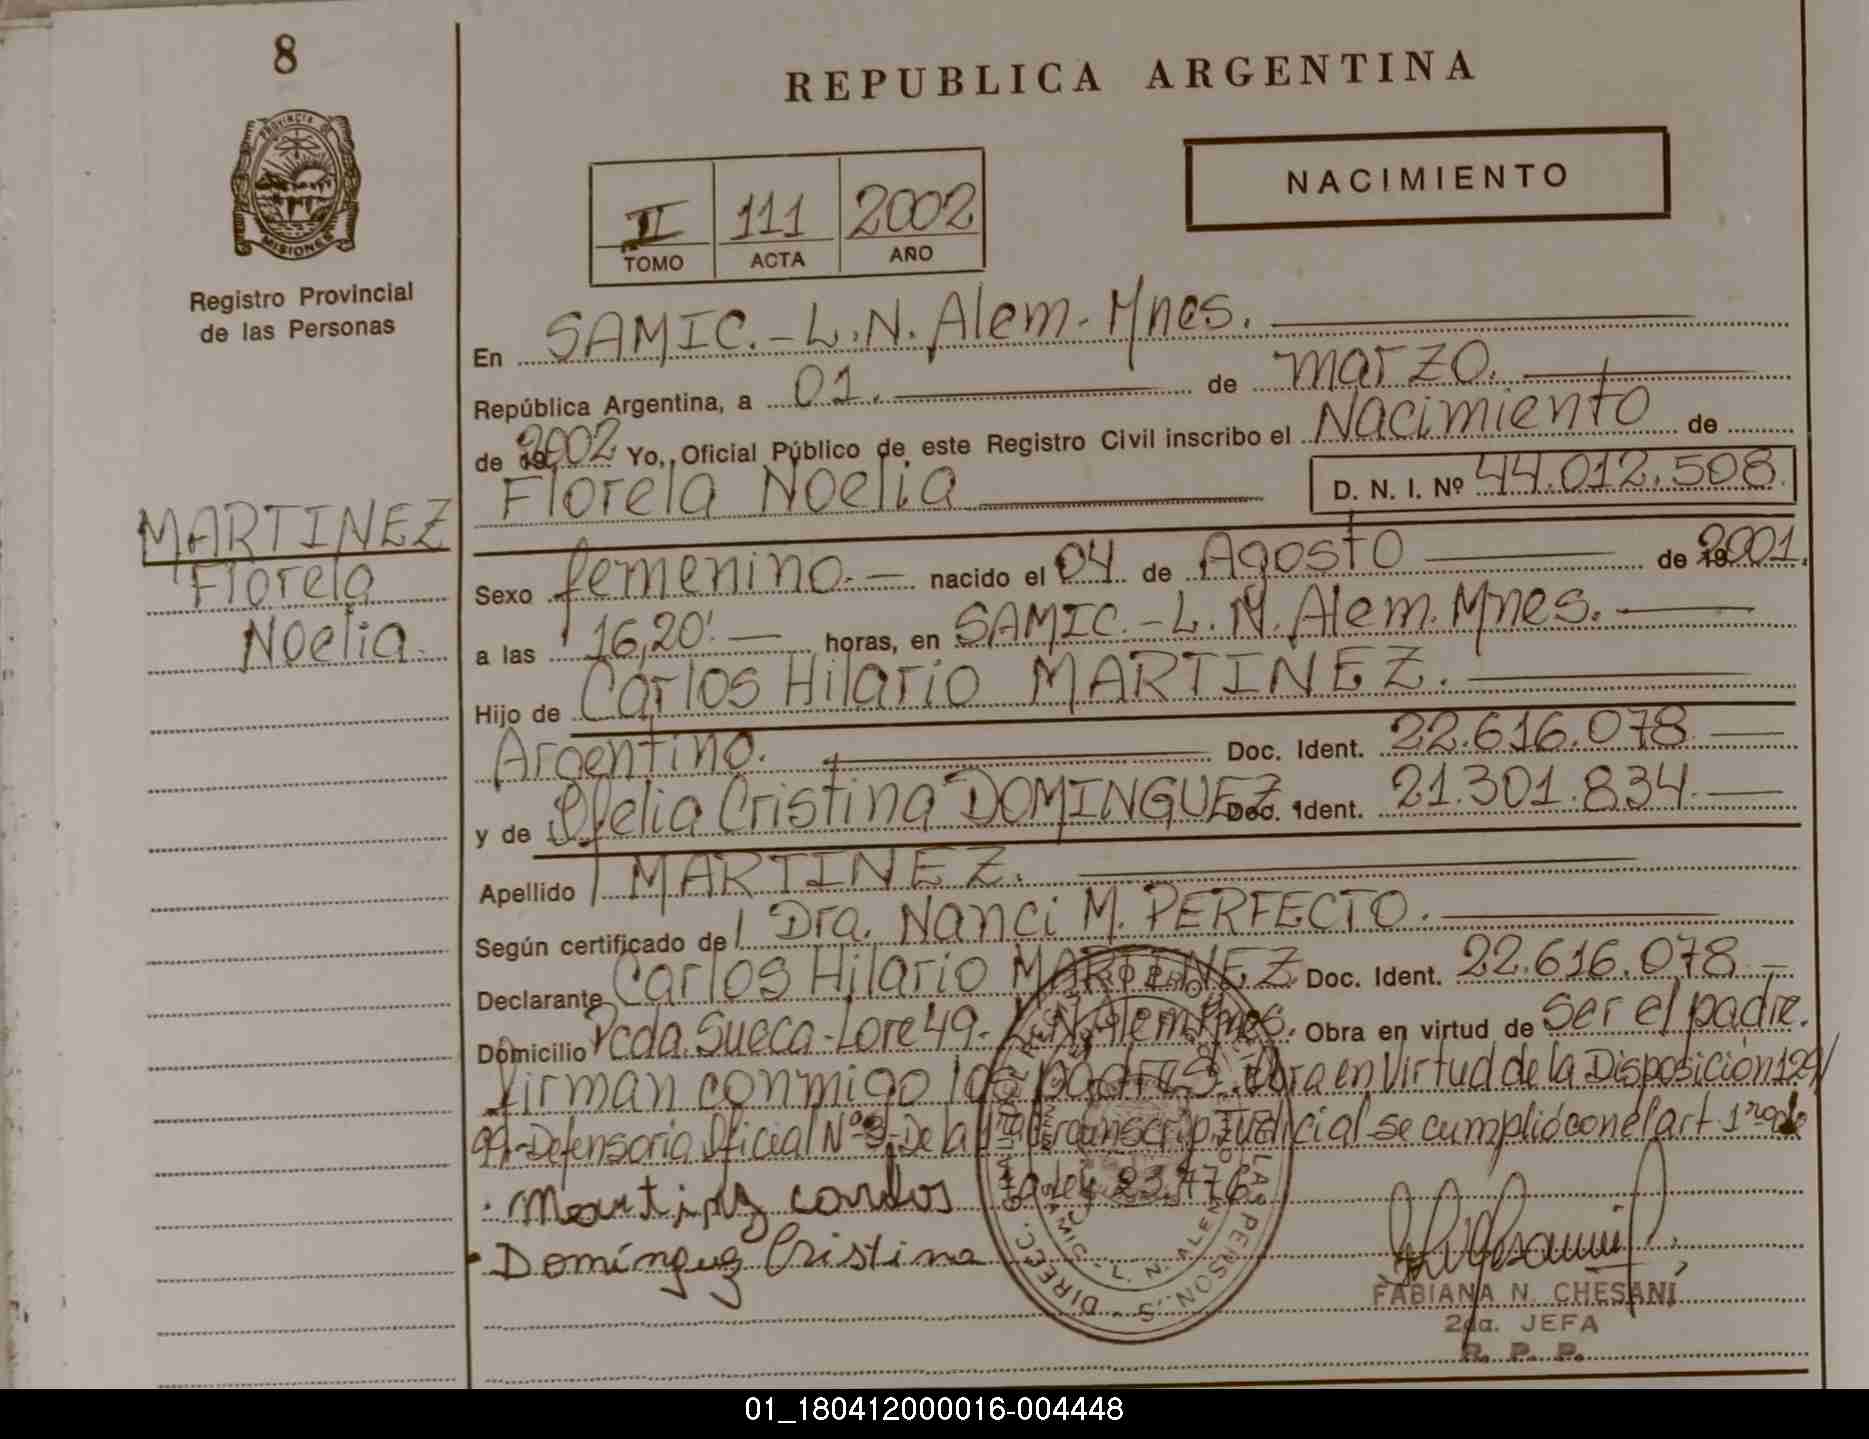 8
REPUBLICA ARGENTINA
PROVINCIA DE
MISIONES
Registro Provincial
de las Personas
II 111 2002
TOMO ACTA AÑO
NACIMIENTO
En SAMIC.-L.N.Alem-Mnes.
República Argentina, a 01. de marzo.
de 2002 Yo, Oficial Público de este Registro Civil inscribo el Nacimiento de
Florela Noelia D. N. I. Nº 44.012.508
MARTINEZ
Florela
Noelia.
Sexo femenino.- nacido el 04 de Agosto de 2001.
a las 16,20' horas, en SAMIC.-L.N.Alem.Mnes.
Hijo de Carlos Hilario MARTINEZ.
Argentino. Doc. Ident. 22.616.078
y de Ofelia Cristina DOMINGUEZ Doc. Ident. 21.301.834
Apellido MARTINEZ.
Según certificado de Dra. Nanci M. PERFECTO.
Declarante Carlos Hilario MARTINEZ Doc. Ident. 22.616.078
Domicilio Pcda.Sueca-Lore49-L.N.Alem.Mnes. Obra en virtud de ser el padre.
firman conmigo los padres. Obra en Virtud de la Disposición 129/
99-Defensoria Oficial Nº 3-De la Circunscrip.Judicial-se cumplió con el art 1ro de
la Ley 23.776
Martinez carlos
Domínguez Cristina
FABIANA N. CHESANI
2da. JEFA
R. P. P.
DIREC. LAS PERSONAS
SAMIC - L. N. ALEM
01_180412000016-004448